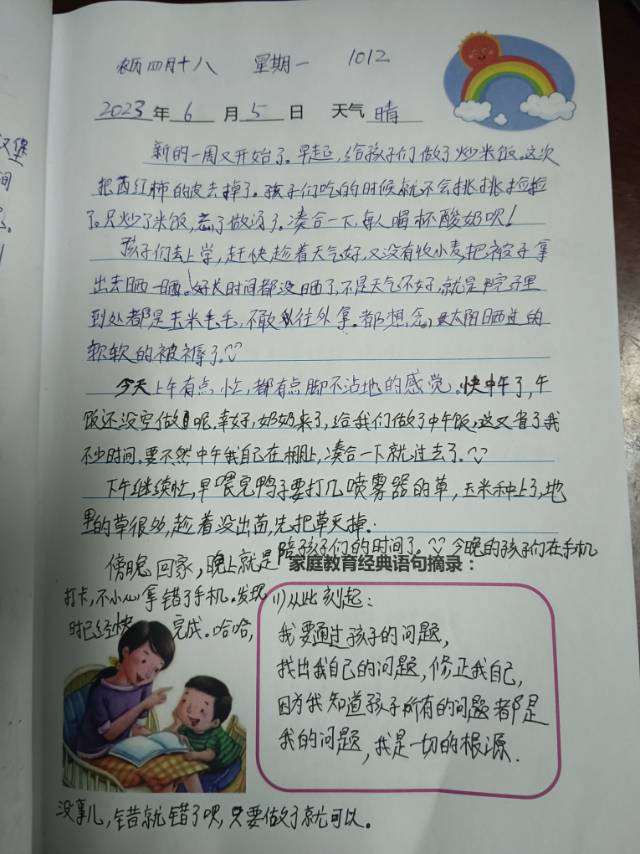 农历四月十八 星期一 1012
2023年6月5日 天气晴
新的一周又开始了。早起,给孩子们做了炒米饭。这次
把西红柿的皮去掉了。孩子们吃的时候就不会挑挑捡捡
了。只炒了米饭,忘了做汤了。凑合一下,每人喝杯酸奶呗!
孩子们去上学,赶快趁着天气好,又没有收小麦把被子拿
出去晒一晒。好长时间都没晒了,不是天气不好,就是院子里
到处都是玉米毛毛,不敢往外拿。都想念太阳晒过的
软软的被褥了。
今天上午有点忙,都有点脚不沾地的感觉。快中午了,午
饭还没空做呢,幸好,奶奶来了,给我们做了中午饭,这又省了我
不少时间,要不然中午我自己在棚上,凑合一下就过去了。
下午继续忙,早喂完鸭子要打几喷雾器的草,玉米种上了,地
里的草很多,趁着没出苗,先把草灭掉。
傍晚回家,晚上就是陪孩子们的时间了。今晚的孩子们在手机
打卡,不小心拿错了手机。发现
时已经快完成。哈哈,
家庭教育经典语句摘录:
(1)从此刻起:
我要通过孩子的问题,
找出我自己的问题,修正我自己,
因为我知道孩子所有的问题都是
我的问题,我是一切的根源.
没事儿,错就错了呗,只要做了就可以。